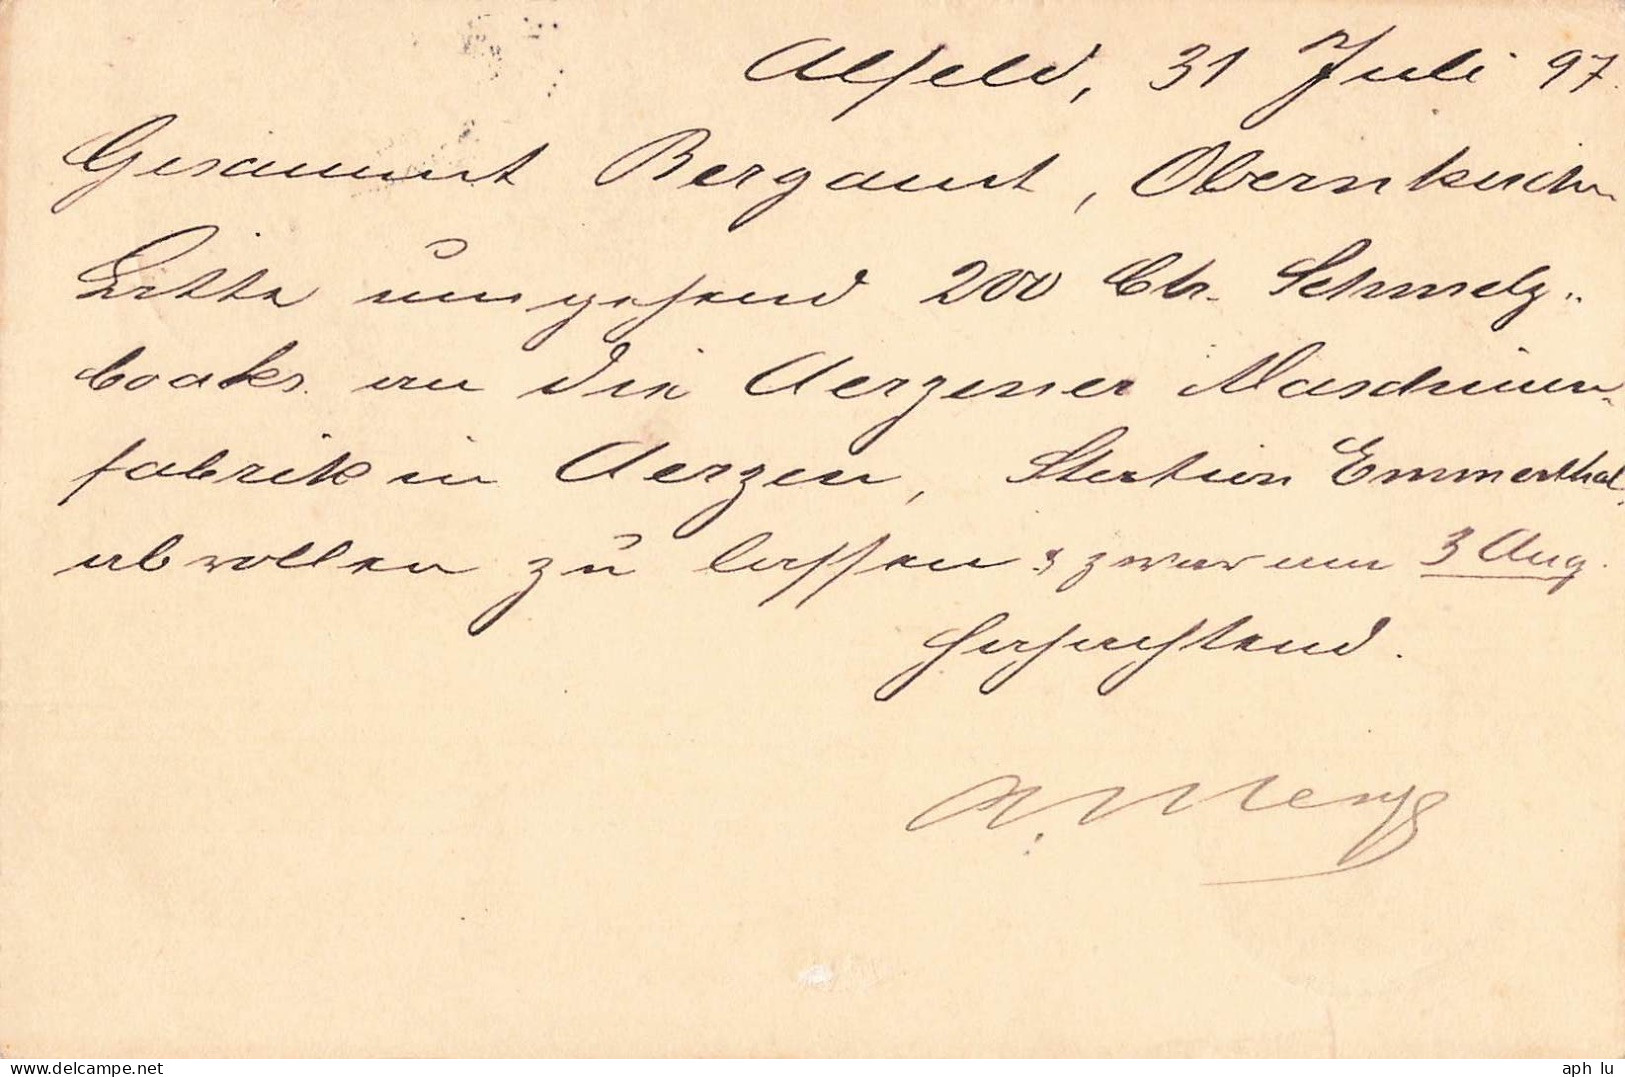 Alfeld, 31 Juli 97.
Gesammt Bergamt, Obernkirchen
Bitte umgehend 200 Ctr. Schmelz-
cooks an die Aerzener Maschinen-
fabrik in Aerzen, Station Emmerthal,
abrollen zu lassen & zwar am 3 Aug.
Hochachtend.
delcampe.net
aph_lu